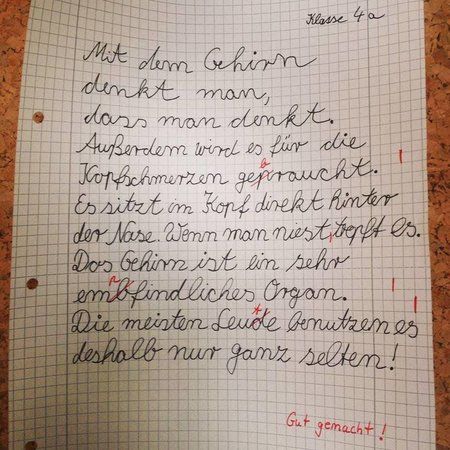 Klasse 4a
Mit dem Gehirn
denkt man,
dass man denkt.
Außerdem wird es für die
Kopfschmerzen gepraucht.
b
Es sitzt im Kopf direkt hinter
der Nase. Wenn man niest, tropft es.
Das Gehirn ist ein sehr
embfindliches Organ.
p
Die meisten Leude benutzen es
t
deshalb nur ganz selten!
Gut gemacht!